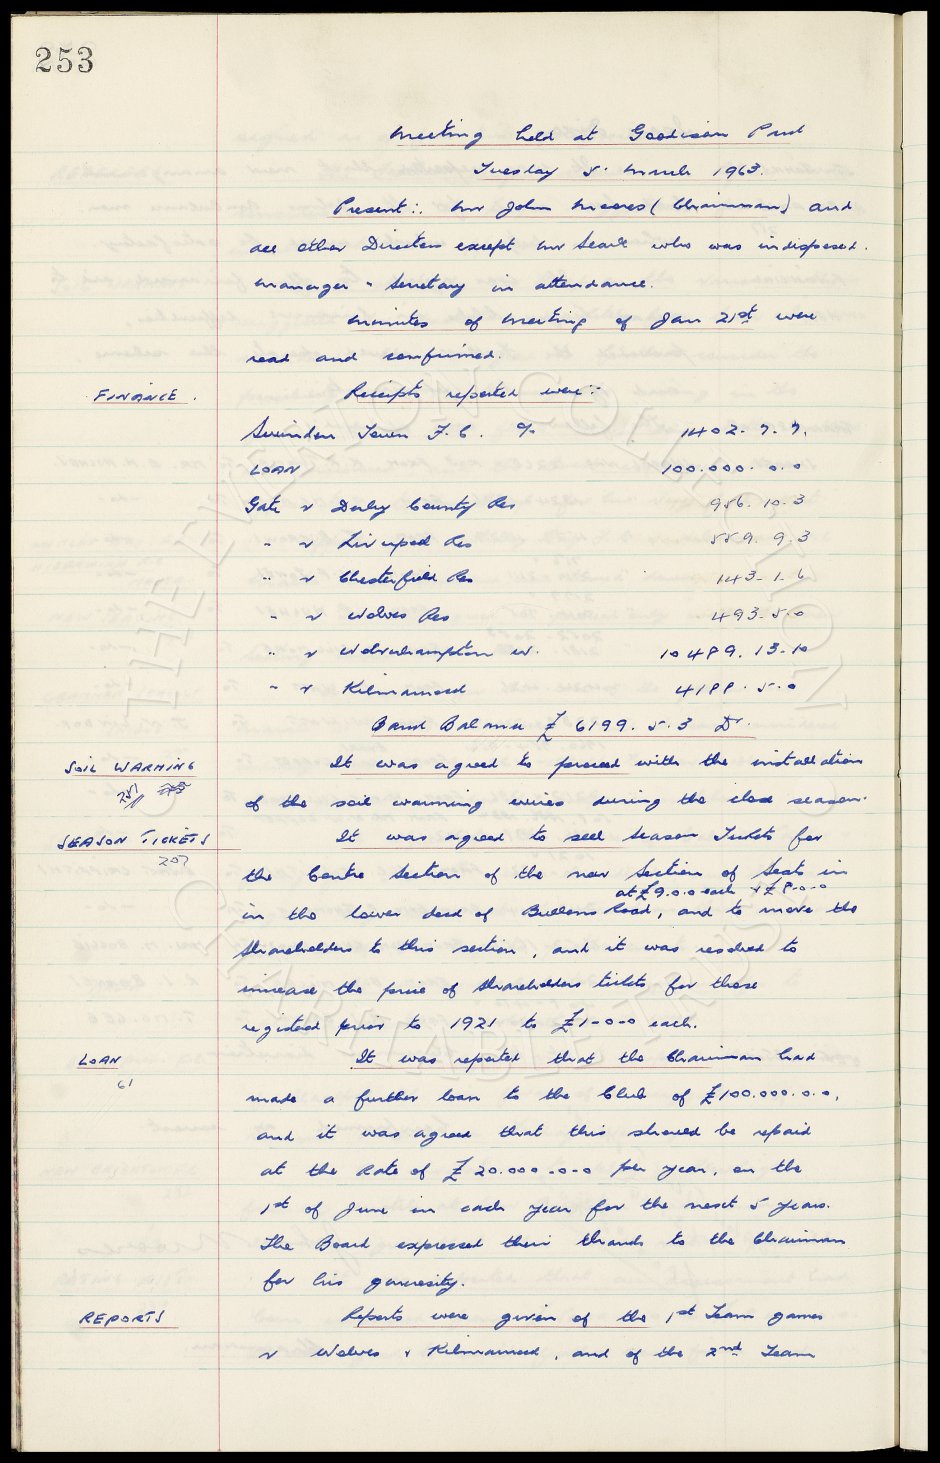 253
Meeting held at Goodison Park
Tuesday 5. March 1963.
Present:. Mr John Moores (Chairman) and
all other Directors except Mr Searle who was indisposed.
Manager " Secretary in attendance.
Minutes of meeting of Jan 21st were
read and confirmed.
FINANCE. Receipts reported were:-
Swindon Town F.C. % 1402. 7. 7.
LOAN 100.000. 0. 0
Gate v Derby County Res 956. 10. 3
" v Liverpool Res 559. 9. 3
" v Chesterfield Res 143. 1. 6
" v Wolves Res 493. 5. 0
" v Wolverhampton W. 10489. 13. 10
" v Kilmarnock 4188. 5. 0
Bank Balance £ 6199. 5. 3 Dr.
SOIL WARMING It was agreed to proceed with the installation
257
of the soil warming wires during the close season.
SEASON TICKETS It was agreed to sell Season Tickets for
257
the Centre Section of the new Section of Seats in
at £9.0.0 each & £8-0-0
in the lower deck of Bullens Road, and to move the
Shareholders to this section, and it was resolved to
increase the price of Shareholders tickets for those
registered prior to 1921 to £1-0-0 each.
LOAN It was reported that the Chairman had
61
made a further loan to the Club of £100.000.0.0,
and it was agreed that this should be repaid
at the Rate of £20.000-0-0 per year, on the
1st of June in each year for the next 5 years.
The Board expressed their thanks to the Chairman
for his generosity.
REPORTS Reports were given of the 1st Team games
v Wolves & Kilmarnock, and of the 2nd Team